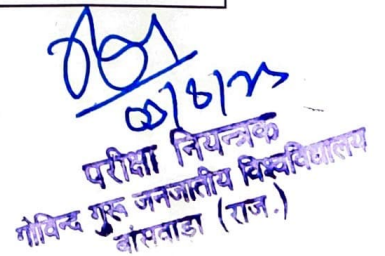 परीक्षा नियन्त्रक
गोविन्द गुरू जनजातीय विश्वविद्यालय
बांसवाडा (राज.)